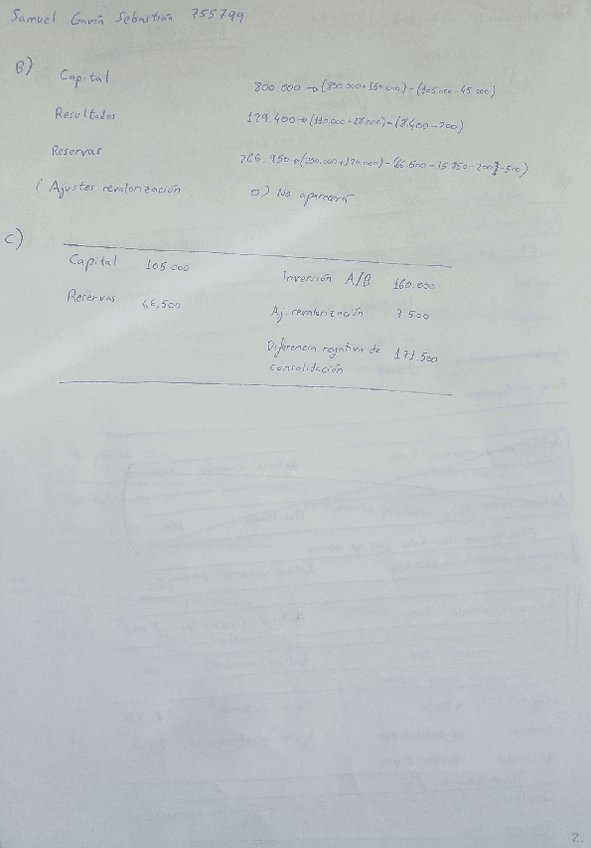 Samuel Gavín Sebastián 755799
B)
Capital 800.000 → (800.000+150.000) - (105.000 - 45.000)
Resultados 129.400 → (110.000 + 28.000) - (8.400 - 200)
Reservas 266.950 → (250.000 + 170.000) - (66.500 - 35.850 - 200
(Ajustes revalorización 0) No aparecerá
C)
Capital 105.000 Inversión A/B 160.000
Reservas 66.500 Aj. revalorización 3.500
Diferencia negativa de 171.500
consolidación
2.